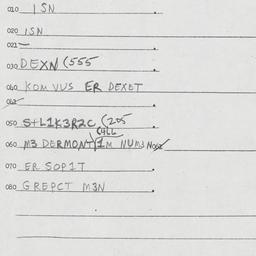 010 ISN
020 ISN
021
030 DEXN (555
040 KOM VUS ER DEXET
042
050 S+L1K3RZC (205
CALL
060 M3 DERMONT) 1M NUM3
070 ER SOP1T
080 GREPCT M3N